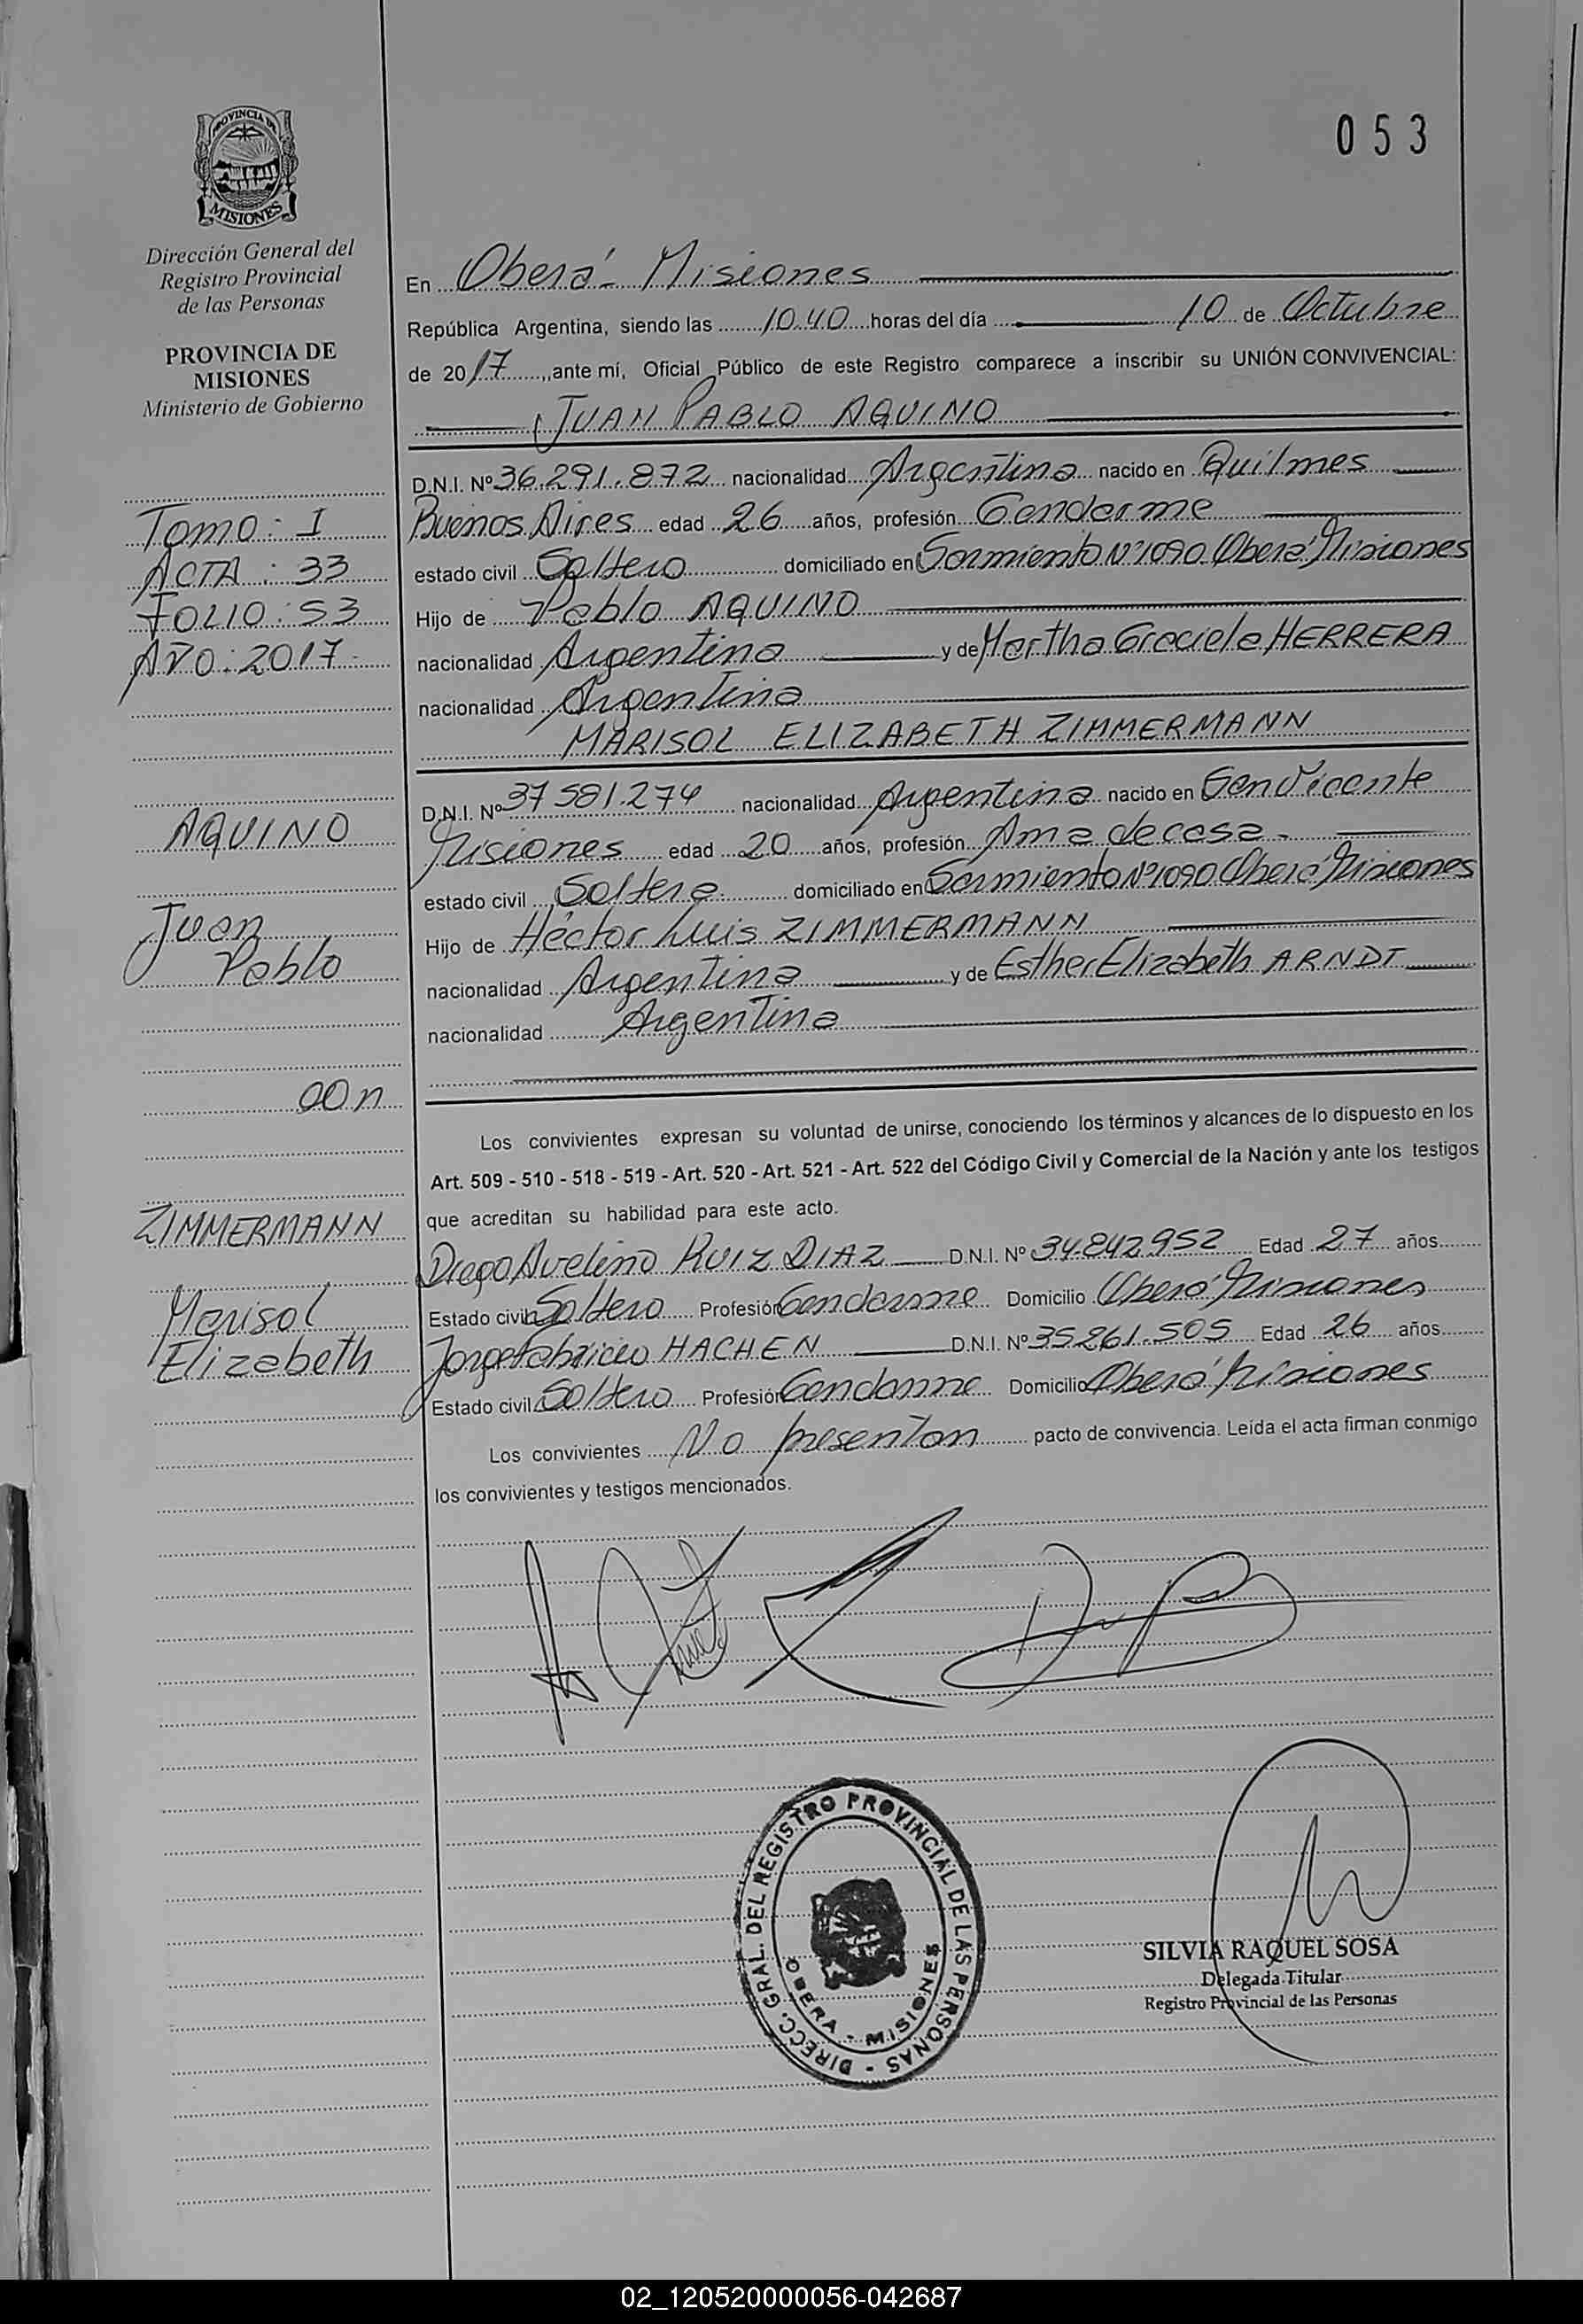 053
PROVINCIA DE
MISIONES
Dirección General del
Registro Provincial
de las Personas
PROVINCIA DE
MISIONES
Ministerio de Gobierno
Tomo: I
ACTA: 33
FOLIO: 53
AÑO: 2017-
AQUINO
Juan
Pablo
con
ZIMMERMANN
Marisol
Elizabeth
En Oberá - Misiones
República Argentina, siendo las 10.40 horas del día 10 de Octubre
de 2017, ante mí, Oficial Público de este Registro comparece a inscribir su UNIÓN CONVIVENCIAL:
JUAN PABLO AQUINO
D.N.I. Nº 36.291.872 nacionalidad Argentina nacido en Quilmes
Buenos Aires edad 26 años, profesión Gendarme
estado civil Soltero domiciliado en Sarmiento Nº1090 Oberá Misiones
Hijo de Pablo AQUINO
nacionalidad Argentina y de Martha Graciela HERRERA
nacionalidad Argentina
MARISOL ELIZABETH ZIMMERMANN
D.N.I. Nº 37581.274 nacionalidad Argentina nacido en San Vicente
Misiones edad 20 años, profesión Ama de casa -
estado civil Soltera domiciliado en Sarmiento Nº1090 Oberá Misiones
Hijo de Héctor Luis ZIMMERMANN
nacionalidad Argentina y de Esther Elizabeth ARNDT
nacionalidad Argentina
Los convivientes expresan su voluntad de unirse, conociendo los términos y alcances de lo dispuesto en los
Art. 509 - 510 - 518 - 519 - Art. 520 - Art. 521 - Art. 522 del Código Civil y Comercial de la Nación y ante los testigos
que acreditan su habilidad para este acto.
Diego Avelino RUIZ DIAZ D.N.I. Nº 34.842.952 Edad 27 años
Estado civil Soltero Profesión Gendarme Domicilio Oberá Misiones
Jorge Fabricio HACHEN D.N.I. Nº 35.261.505 Edad 26 años
Estado civil Soltero Profesión Gendarme Domicilio Oberá Misiones
Los convivientes No presentan pacto de convivencia. Leída el acta firman conmigo
los convivientes y testigos mencionados.
DIRECC. GRAL. DEL REGISTRO PROVINCIAL DE LAS PERSONAS -
OBERA - MISIONES
SILVIA RAQUEL SOSA
Delegada Titular
Registro Provincial de las Personas
02_120520000056-042687